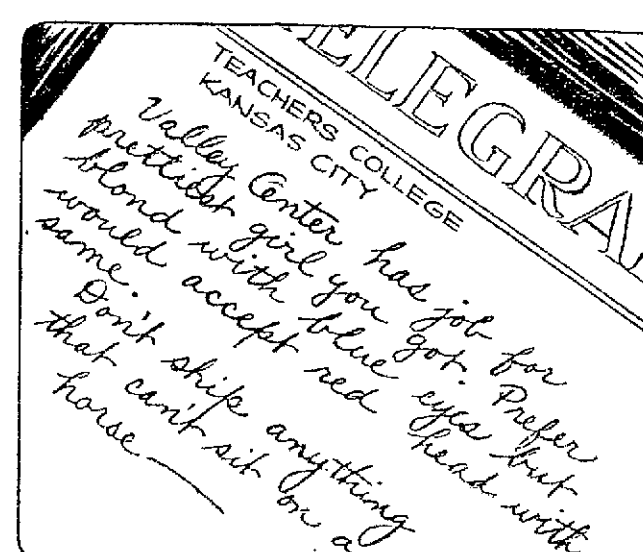 TELEGRA
TEACHERS COLLEGE
KANSAS CITY
Valley Center has job for
prettiest girl you got. Prefer
blond with blue eyes but
would accept red head with
same.
Don't ship anything
that can't sit on a
horse